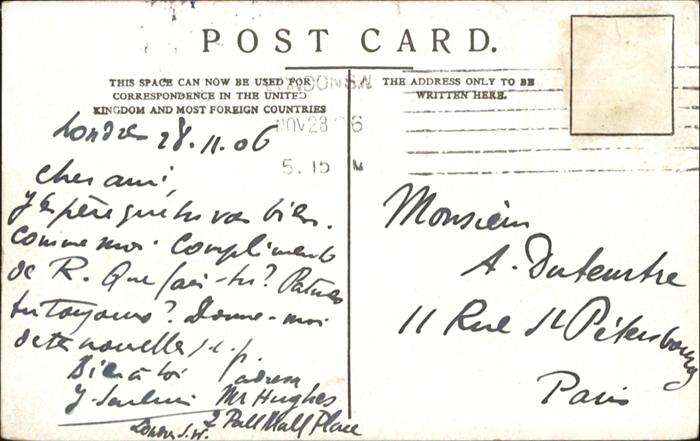 POST CARD.
THIS SPACE CAN NOW BE USED FOR
CORRESPONDENCE IN THE UNITED
KINGDOM AND MOST FOREIGN COUNTRIES
THE ADDRESS ONLY TO BE
WRITTEN HERE.
LONDON S.W
NOV 28 06
5. 15
Londres 28.11.06
Cher ami,
J'espère que tu vas bien.
Comme moi. Compliments
de R. Que fais-tu?
tu toujours? Donne-moi
de tes nouvelles s.v.p.
Bien à toi
adresse
Mr Hughes
2 Pall Mall Place
Londres S.W.
Monsieur
A. Duteurtre
11 Rue St Pétersbourg
Paris